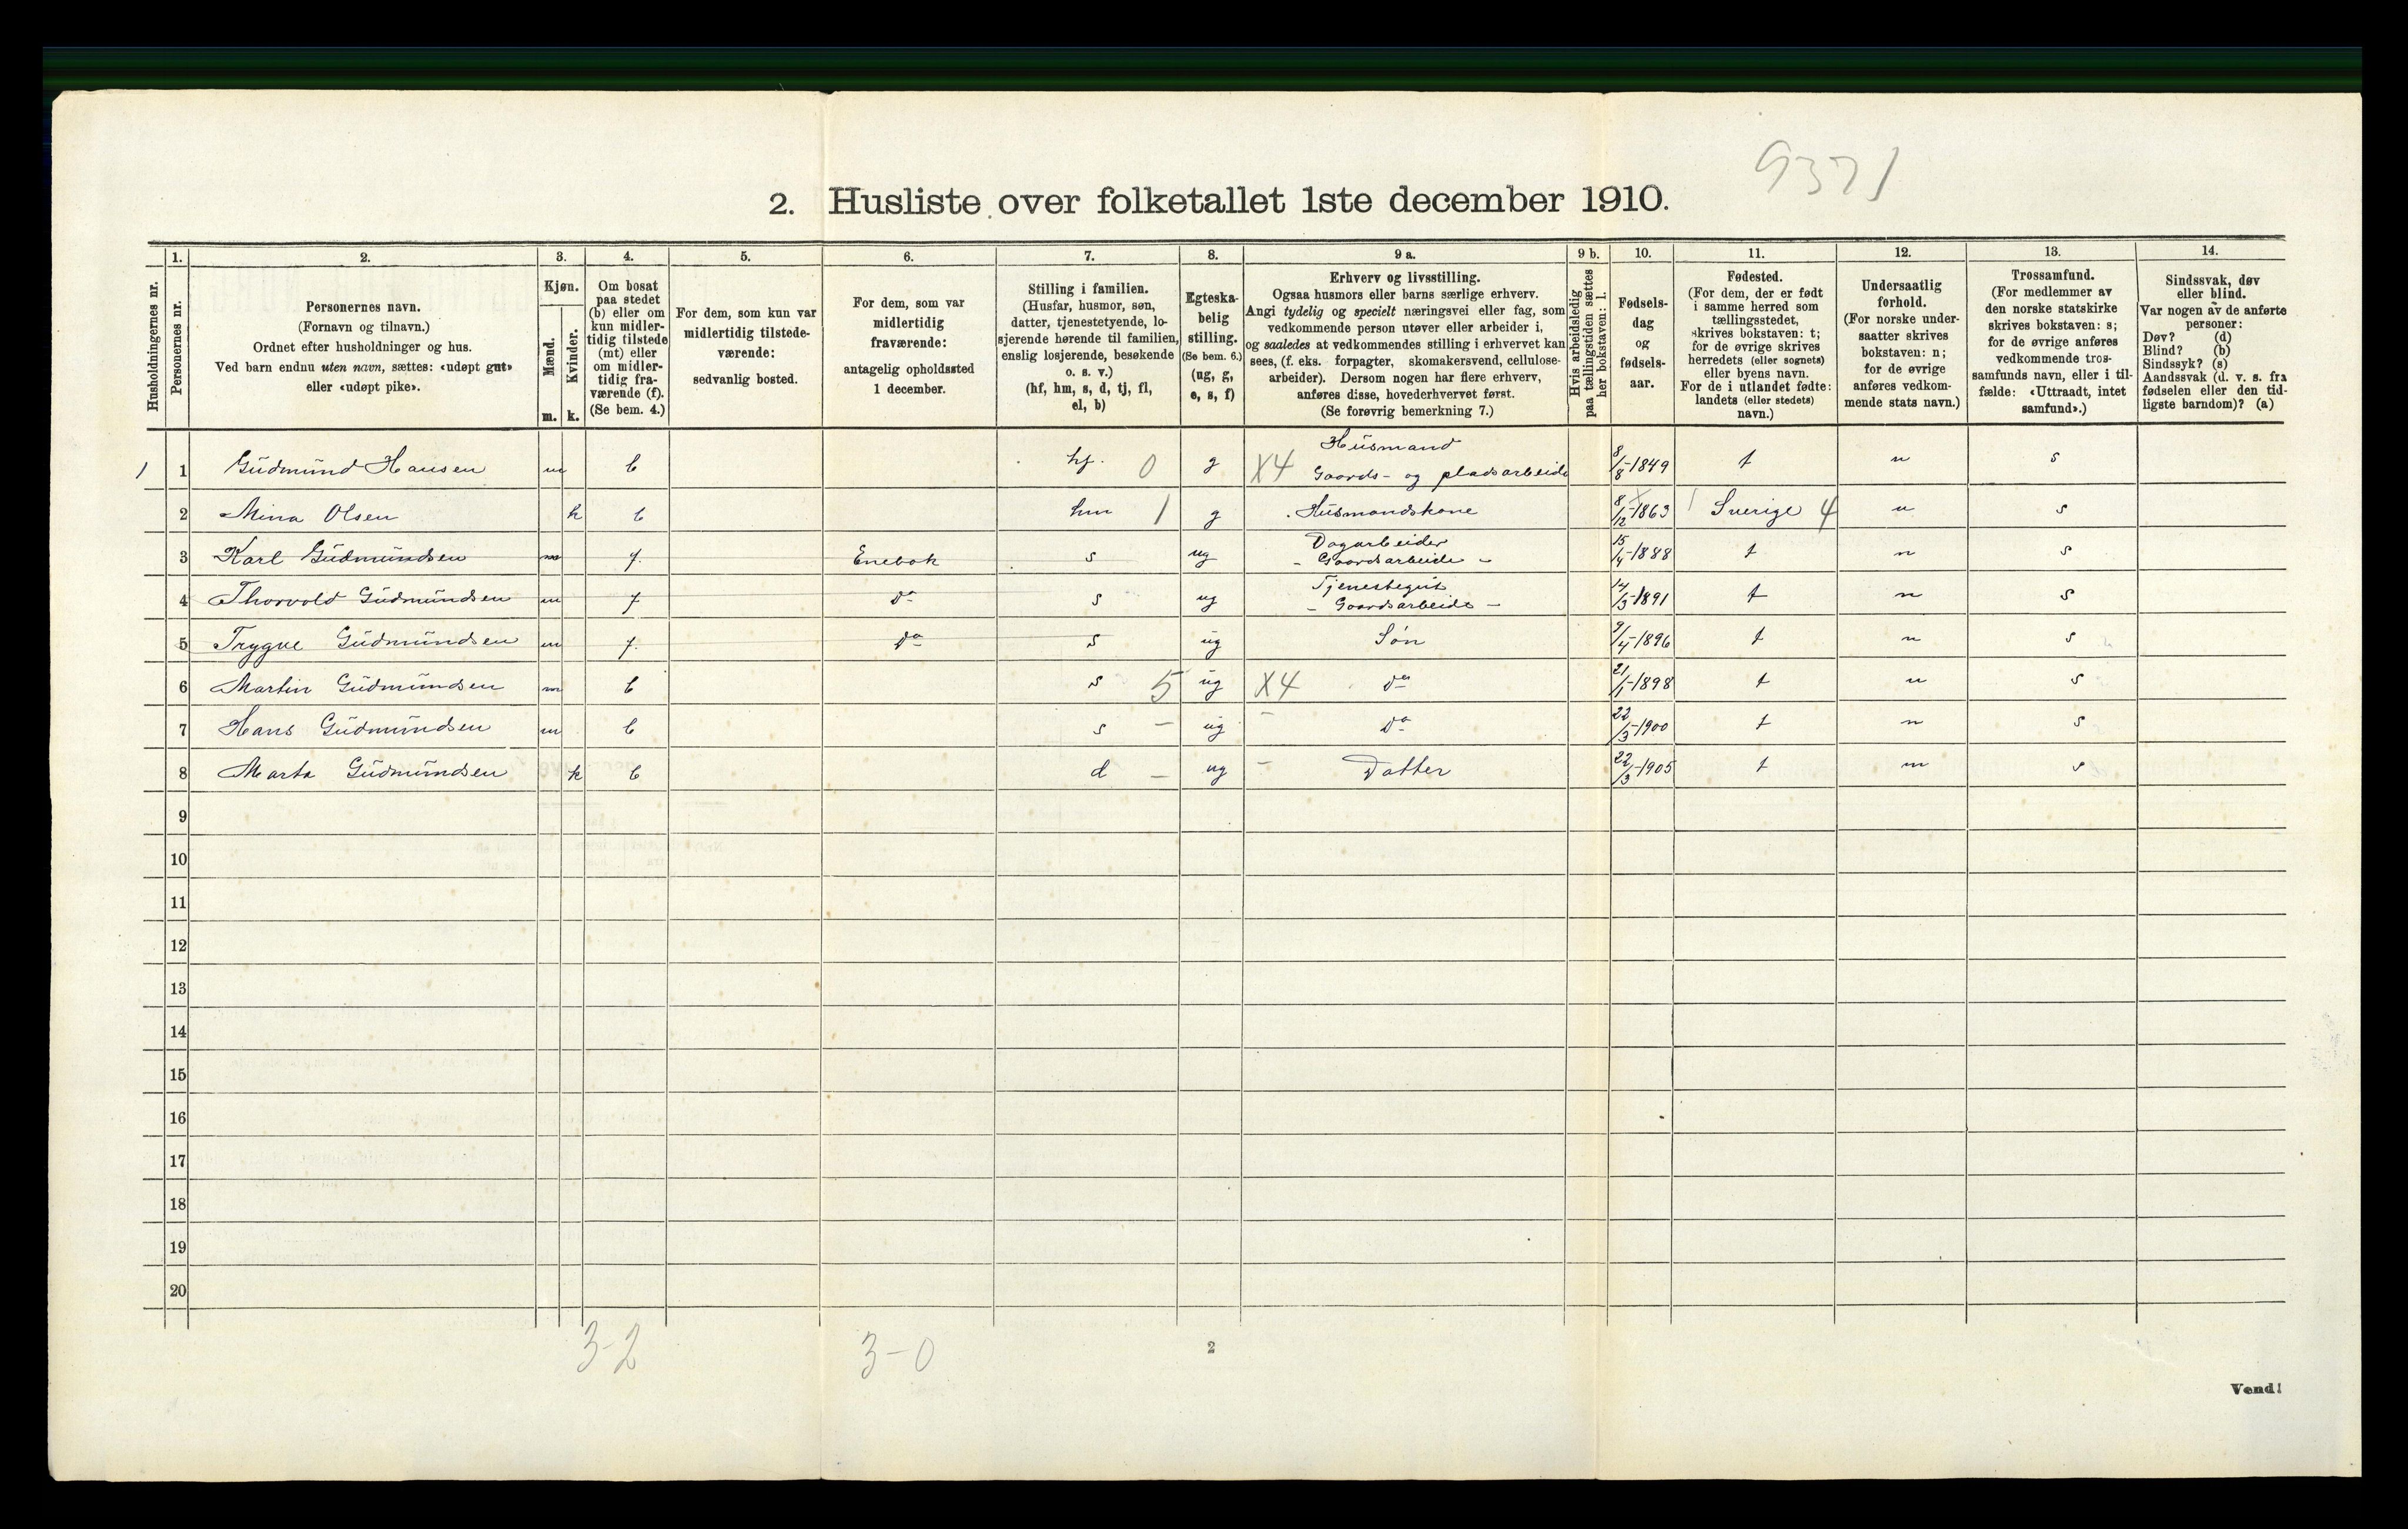 9371
2. Husliste over folketallet 1ste december 1910.
Husholdningernes nr.
1. Personernes nr.
2. Personernes navn. (Fornavn og tilnavn.) Ordnet efter husholdninger og hus. Ved barn endnu uten navn, sættes: «udøpt gut» eller «udøpt pike».
3. Kjøn. Mænd. m. Kvinder. k.
4. Om bosat paa stedet (b) eller om kun midler-tidig tilstede (mt) eller om midler-tidig fra-værende (f). (Se bem. 4.)
5. For dem, som kun var midlertidig tilstede-værende: sedvanlig bosted.
6. For dem, som var midlertidig fraværende: antagelig opholdssted 1 december.
7. Stilling i familien. (Husfar, husmor, søn, datter, tjenestetyende, lo-sjerende hørende til familien, enslig losjerende, besøkende o. s. v.) (hf, hm, s, d, tj, fl, el, b)
8. Egteska-belig stilling. (Se bem. 6.) (ug, g, e, s, f)
9 a. Erhverv og livsstilling. Ogsaa husmors eller barns særlige erhverv. Angi tydelig og specielt næringsvei eller fag, som vedkommende person utøver eller arbeider i, og saaledes at vedkommendes stilling i erhvervet kan sees, (f. eks. forpagter, skomakersvend, cellulose-arbeider). Dersom nogen har flere erhverv, anføres disse, hovederhvervet først. (Se forøvrig bemerkning 7.)
9 b. Hvis arbeidsledig paa tællingstiden sættes her bokstaven: l.
10. Fødsels-dag og fødsels-aar.
11. Fødested. (For dem, der er født i samme herred som tællingsstedet, skrives bokstaven: t; for de øvrige skrives herredets (eller sognets) eller byens navn. For de i utlandet fødte: landets (eller stedets) navn.)
12. Undersaatlig forhold. (For norske under-saatter skrives bokstaven: n; for de øvrige anføres vedkom-mende stats navn.)
13. Trossamfund. (For medlemmer av den norske statskirke skrives bokstaven: s; for de øvrige anføres vedkommende tros-samfunds navn, eller i til-fælde: «Uttraadt, intet samfund».)
14. Sindssvak, døv eller blind. Var nogen av de anførte personer: Døv? (d) Blind? (b) Sindssyk? (s) Aandssvak (d. v. s. fra fødselen eller den tid-ligste barndom)? (a)
1 1 Gudmund Hansen m b hf. 0 g X4 Husmand Gaards- og pladsarbeide 8/8-1849 t n s
2 Mina Olsen k b hm 1 g Husmandskone 8/12-1863 Sverige 4 n s
3 Karl Gudmundsen m f. Enebak s ug Dagarbeider - Gaardsarbeide - 15/4-1888 t n s
4 Thorvald Gudmundsen m f do s ug Tjenestegut - Gaardsarbeide - 14/3-1891 t n s
5 Trygve Gudmundsen m f. do s ug Søn 9/4-1896 t n s
6 Martin Gudmundsen m b s 5 ug X4 do 21/1-1898 t n s
7 Hans Gudmundsen m b s - ug - do 22/3-1900 t n s
8 Marta Gudmundsen k b d - ug - Datter 22/3-1905 t n s
9
10
11
12
13
14
15
16
17
18
19
20
3-2 3-0
2
Vend!